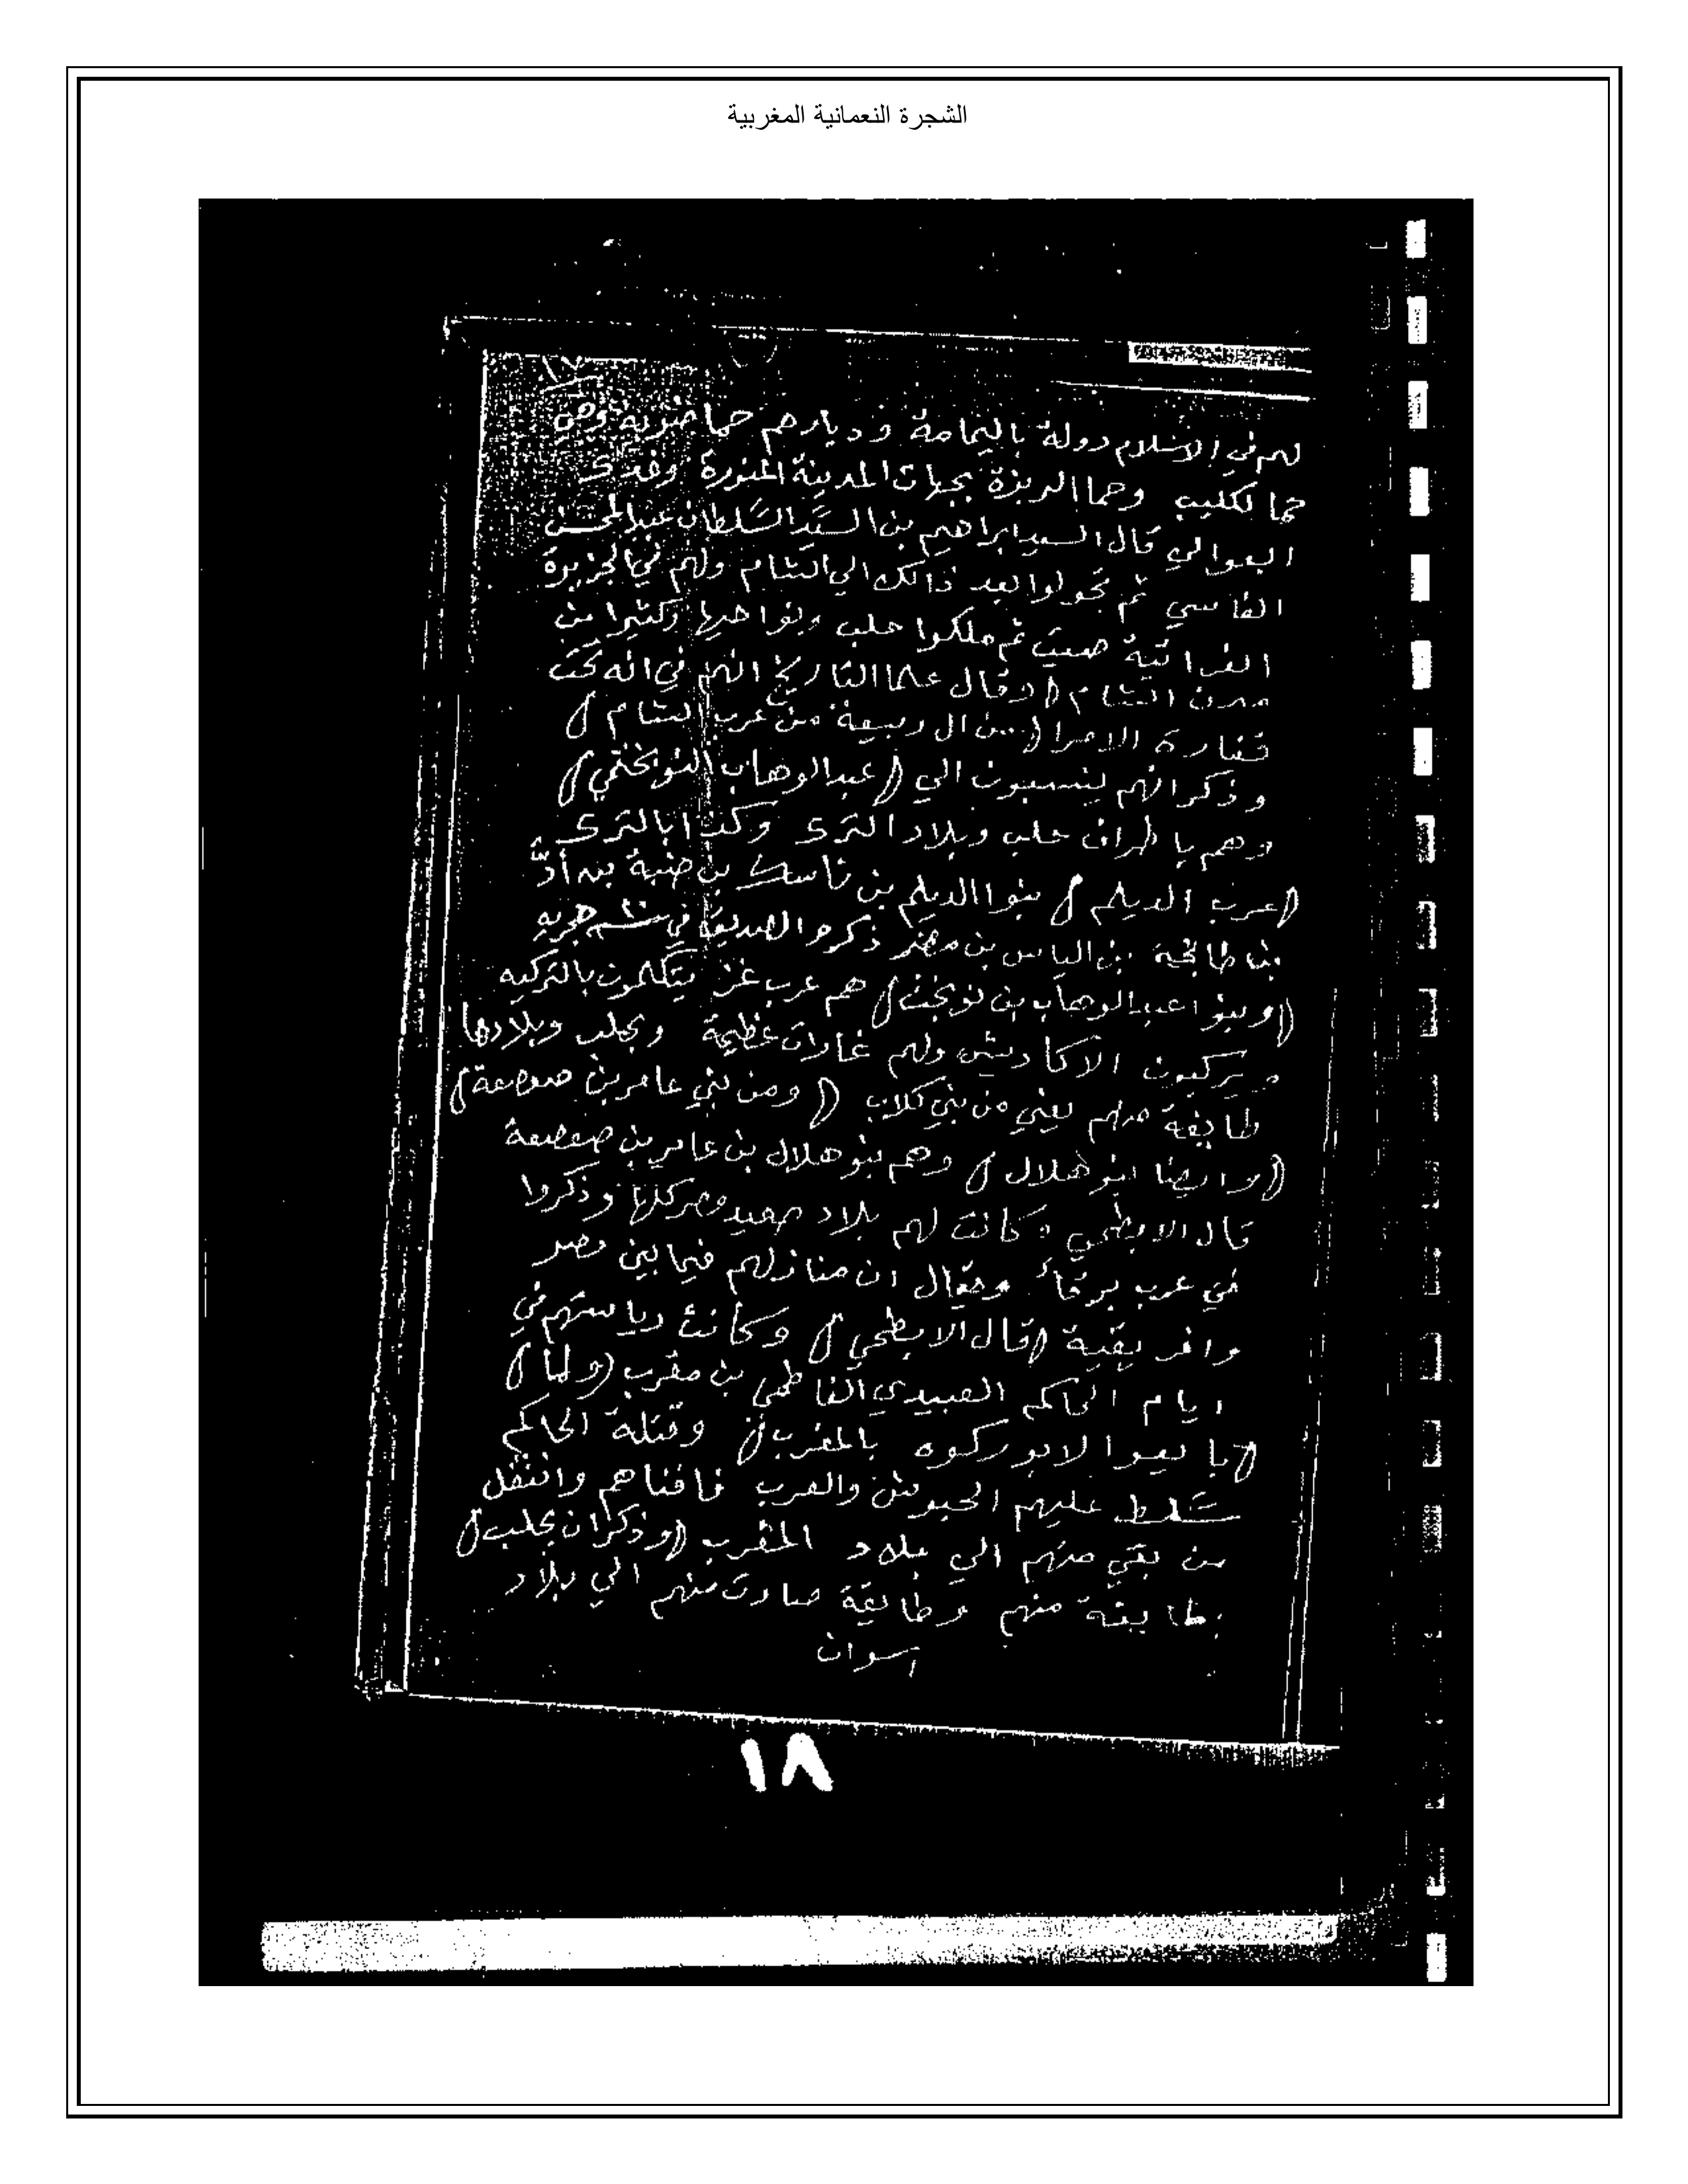 الشجرة النعمانية المغربية
١٧
لهم في الاسلام دولة باليمامة و ديارهم حما ضرية وهي
حما لكليب وحما الربزة بجهات المدينة المنورة وفدك
العوالي قال السيد ابراهيم بن السيد السلطان عبد المحسن
الفاسي ثم تحولوا بعد ذالك الي الشام ولهم في الجزيرة
الفراتية صيت ثم ملكوا حلب ونواحيها وكثيرا من
مدن الشام (وقال علما التاريخ انهم في انه تحت
خفارة الامرا (من ال ربيعة من عرب الشام)
وذكر انهم ينسبون الي (عبد الوهاب النوبختي)
وهم با طراف حلب وبلاد الترك وكذا بالترك
(عرب الديلم) بنوا الديلم بن ناسك بن ضبة بن أد
بن طابخة بن الياس بن مضر ذكره في هجريه
(وبنو اعبد الوهاب بن نوبخت) هم عرب غز يتكلمون بالتركيه
و يركبون الاكاديش ولهم غارات عظيمة وبحلب وبلادها
طايفة منهم يعني من بني كلاب (ومن بني عامر بن صعصعة)
(وايضا بنو هلال) وهم بنو هلال بن عامر بن صعصعة
قال الابطحي وكانت لهم بلاد صعيد مصر كلها وذكروا
في عرب برقاء ويقال ان منازلهم فيما بين مصر
وافريقية (قال الابطحي) وكانت رياستهم في
ايام الحاكم العبيدي الفاطمي بن مقرب (ولما)
(بايعوا لابو ركوه بالمغرب) وقتلة الحاكم
سلط عليهم الجيوش والعرب فافناهم وانتقل
من بقي منهم الي بلاد المغرب (وذكر ان بحلب)
طايفة منهم وطايفة صارت منهم الي بلاد
اسوان
١٨